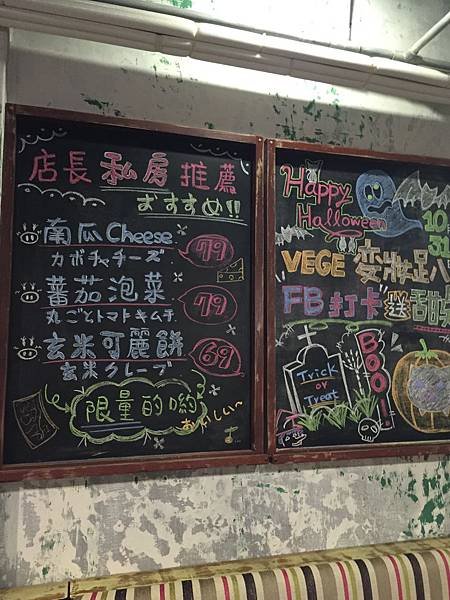 店長 私房 推薦
おすすめ!!
南瓜 Cheese 79
カボチャチーズ
蕃茄泡菜 79
丸ごとトマトキムチ
玄米可麗餅 69
玄米クレープ
限量的喲
おいしい~
Happy
Halloween
10
31
VEGE 変妝趴
FB 打卡 送
Trick
or
Treat
BOO!